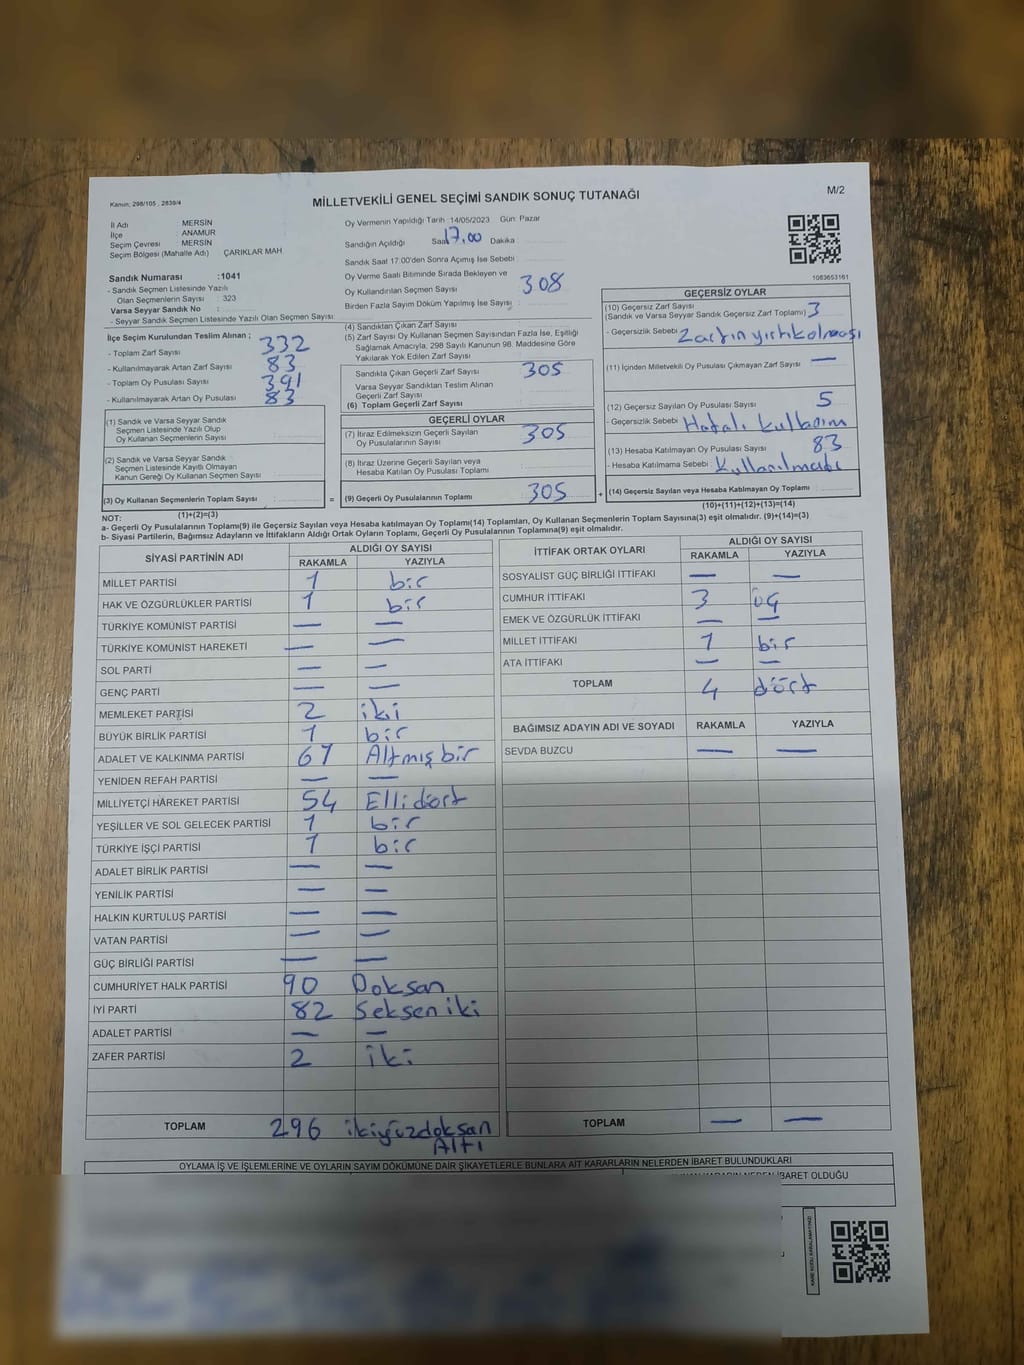 Kanun: 298/105 , 2839/4
MİLLETVEKİLİ GENEL SEÇİMİ SANDIK SONUÇ TUTANAĞI
M/2
İl Adı MERSİN
İlçe ANAMUR
Seçim Çevresi MERSİN
Seçim Bölgesi (Mahalle Adı) ÇARIKLAR MAH
Sandık Numarası :1041
- Sandık Seçmen Listesinde Yazılı
Olan Seçmenlerin Sayısı : 323
Varsa Seyyar Sandık No :
- Seyyar Sandık Seçmen Listesinde Yazılı Olan Seçmen Sayısı:
Oy Vermenin Yapıldığı Tarih :14/05/2023 Gün: Pazar
Sandığın Açıldığı Saat 17,00 Dakika
Sandık Saat 17:00'den Sonra Açılmış İse Sebebi
Oy Verme Saati Bitiminde Sırada Bekleyen ve
Oy Kullandırılan Seçmen Sayısı 308
Birden Fazla Sayım Döküm Yapılmış İse Sayısı
1083653161
İlçe Seçim Kurulundan Teslim Alınan ;
- Toplam Zarf Sayısı 332
- Kullanılmayarak Artan Zarf Sayısı 83
- Toplam Oy Pusulası Sayısı 391
- Kullanılmayarak Artan Oy Pusulası 83
(1) Sandık ve Varsa Seyyar Sandık
Seçmen Listesinde Yazılı Olup
Oy Kullanan Seçmenlerin Sayısı
(2) Sandık ve Varsa Seyyar Sandık
Seçmen Listesinde Kayıtlı Olmayan
Kanun Gereği Oy Kullanan Seçmen Sayısı
(3) Oy Kullanan Seçmenlerin Toplam Sayısı
(1)+(2)=(3)
(4) Sandıktan Çıkan Zarf Sayısı
(5) Zarf Sayısı Oy Kullanan Seçmen Sayısından Fazla İse, Eşitliği
Sağlamak Amacıyla, 298 Sayılı Kanunun 98. Maddesine Göre
Yakılarak Yok Edilen Zarf Sayısı
Sandıkta Çıkan Geçerli Zarf Sayısı 305
Varsa Seyyar Sandıktan Teslim Alınan
Geçerli Zarf Sayısı
(6) Toplam Geçerli Zarf Sayısı
GEÇERLİ OYLAR
(7) İtiraz Edilmeksizin Geçerli Sayılan
Oy Pusulalarının Sayısı 305
(8) İtiraz Üzerine Geçerli Sayılan veya
Hesaba Katılan Oy Pusulası Toplamı
= (9) Geçerli Oy Pusulalarının Toplamı 305 +
GEÇERSİZ OYLAR
(10) Geçersiz Zarf Sayısı
(Sandık ve Varsa Seyyar Sandık Geçersiz Zarf Toplamı) 3
- Geçersizlik Sebebi Zarfın yırtık olması
(11) İçinden Milletvekili Oy Pusulası Çıkmayan Zarf Sayısı —
(12) Geçersiz Sayılan Oy Pusulası Sayısı 5
- Geçersizlik Sebebi Hatalı kullanım
(13) Hesaba Katılmayan Oy Pusulası Sayısı 83
- Hesaba Katılmama Sebebi : Kullanılmadı
(14) Geçersiz Sayılan veya Hesaba Katılmayan Oy Toplamı
(10)+(11)+(12)+(13)=(14)
NOT:
a- Geçerli Oy Pusulalarının Toplamı(9) ile Geçersiz Sayılan veya Hesaba katılmayan Oy Toplamı(14) Toplamları, Oy Kullanan Seçmenlerin Toplam Sayısına(3) eşit olmalıdır. (9)+(14)=(3)
b- Siyasi Partilerin, Bağımsız Adayların ve İttifakların Aldığı Ortak Oyların Toplamı, Geçerli Oy Pusulalarının Toplamına(9) eşit olmalıdır.
SİYASİ PARTİNİN ADI ALDIĞI OY SAYISI
RAKAMLA YAZIYLA
MİLLET PARTİSİ 1 bir
HAK VE ÖZGÜRLÜKLER PARTİSİ 1 bir
TÜRKİYE KOMÜNİST PARTİSİ — —
TÜRKİYE KOMÜNİST HAREKETİ — —
SOL PARTİ — —
GENÇ PARTİ — —
MEMLEKET PARTİSİ 2 iki
BÜYÜK BİRLİK PARTİSİ 1 bir
ADALET VE KALKINMA PARTİSİ 61 Altmış bir
YENİDEN REFAH PARTİSİ — —
MİLLİYETÇİ HAREKET PARTİSİ 54 Elli dört
YEŞİLLER VE SOL GELECEK PARTİSİ 1 bir
TÜRKİYE İŞÇİ PARTİSİ 1 bir
ADALET BİRLİK PARTİSİ — —
YENİLİK PARTİSİ — —
HALKIN KURTULUŞ PARTİSİ — —
VATAN PARTİSİ — —
GÜÇ BİRLİĞİ PARTİSİ — —
CUMHURİYET HALK PARTİSİ 90 Doksan
İYİ PARTİ 82 Seksen iki
ADALET PARTİSİ — —
ZAFER PARTİSİ 2 iki
TOPLAM 296 ikiyüzdoksan
Altı
İTTİFAK ORTAK OYLARI ALDIĞI OY SAYISI
RAKAMLA YAZIYLA
SOSYALİST GÜÇ BİRLİĞİ İTTİFAKI — —
CUMHUR İTTİFAKI 3 üç
EMEK VE ÖZGÜRLÜK İTTİFAKI — —
MİLLET İTTİFAKI 1 bir
ATA İTTİFAKI — —
TOPLAM 4 dört
BAĞIMSIZ ADAYIN ADI VE SOYADI RAKAMLA YAZIYLA
SEVDA BUZCU — —
TOPLAM — —
OYLAMA İŞ VE İŞLEMLERİNE VE OYLARIN SAYIM DÖKÜMÜNE DAİR ŞİKAYETLERLE BUNLARA AİT KARARLARIN NELERDEN İBARET BULUNDUKLARI
İBARET OLDUĞU